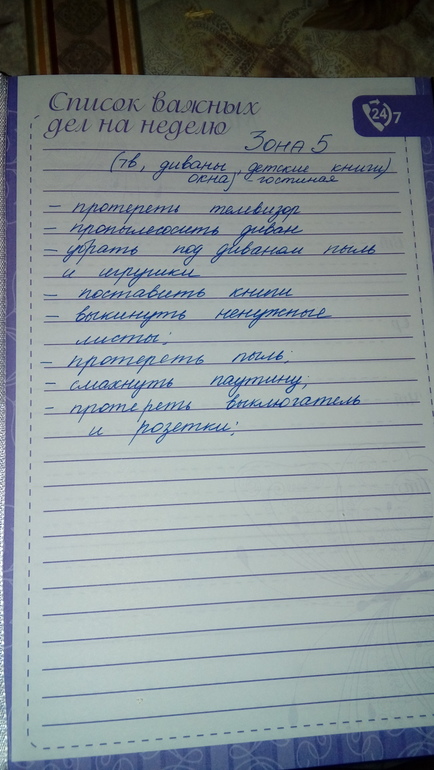 Список важных
дел на неделю
24/7
Зона 5
(тв, диваны, детские книги)
окна, гостиная
- протереть телевизор
- пропылесосить диван
- убрать под диваном пыль
и игрушки
- поставить книги
- выкинуть ненужные
листы;
- протереть пыль;
- смахнуть паутину;
- протереть выключатель
и розетки;